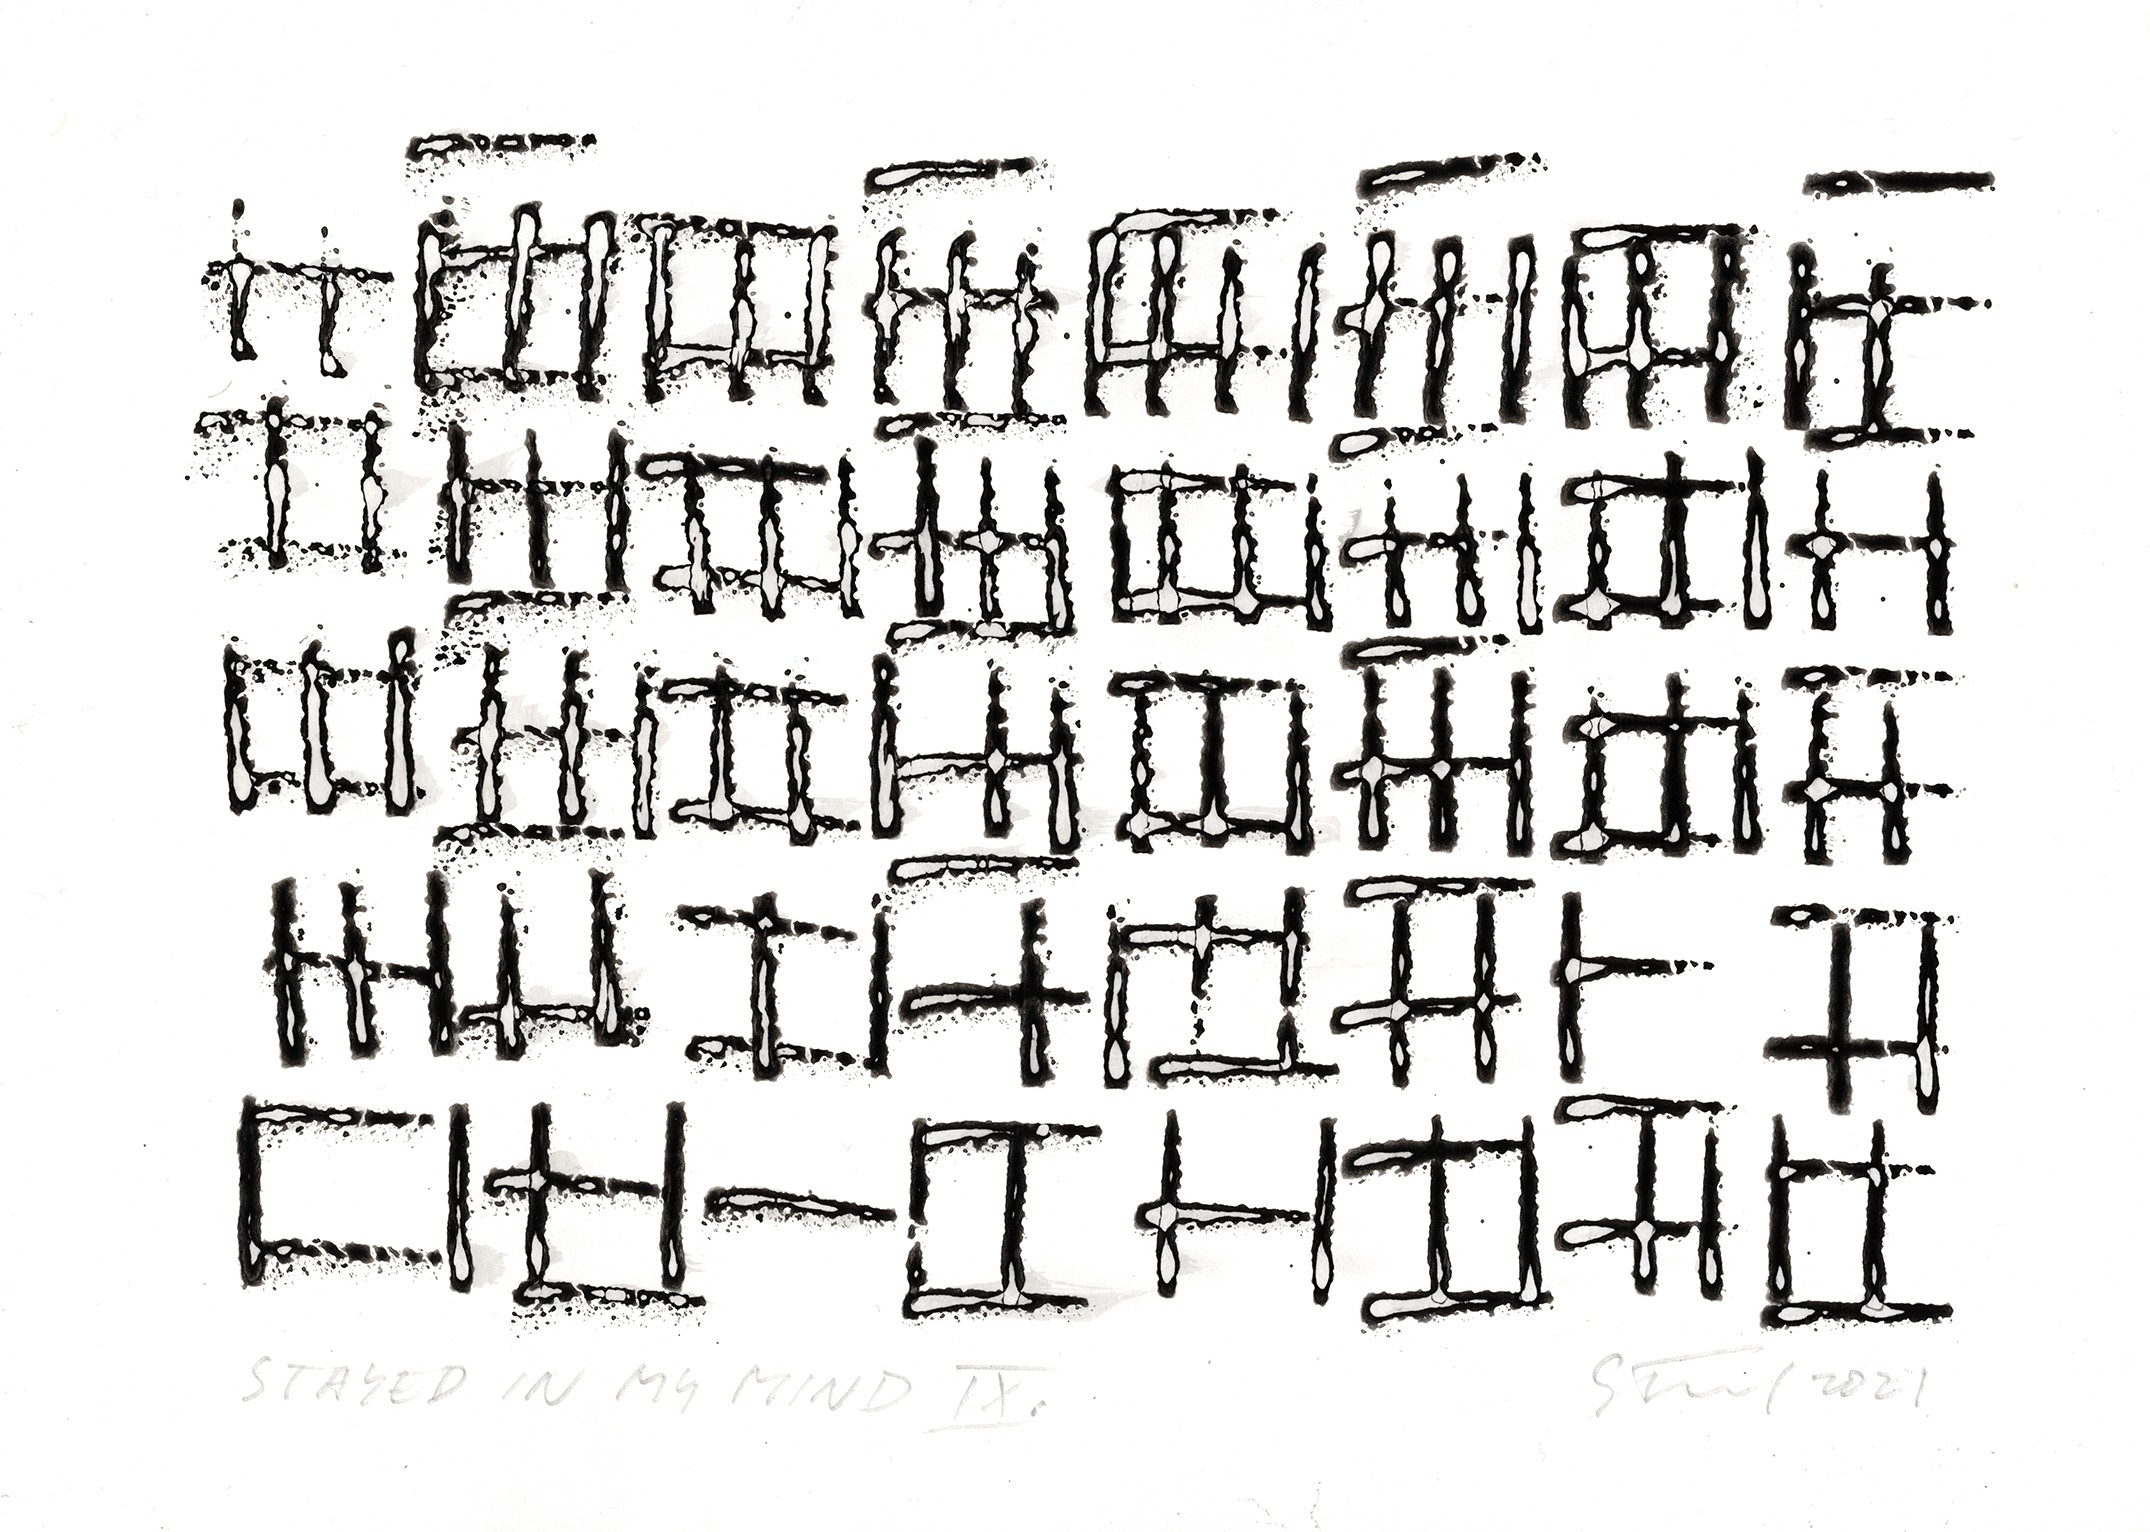 STAYED IN MY MIND IX.
2021